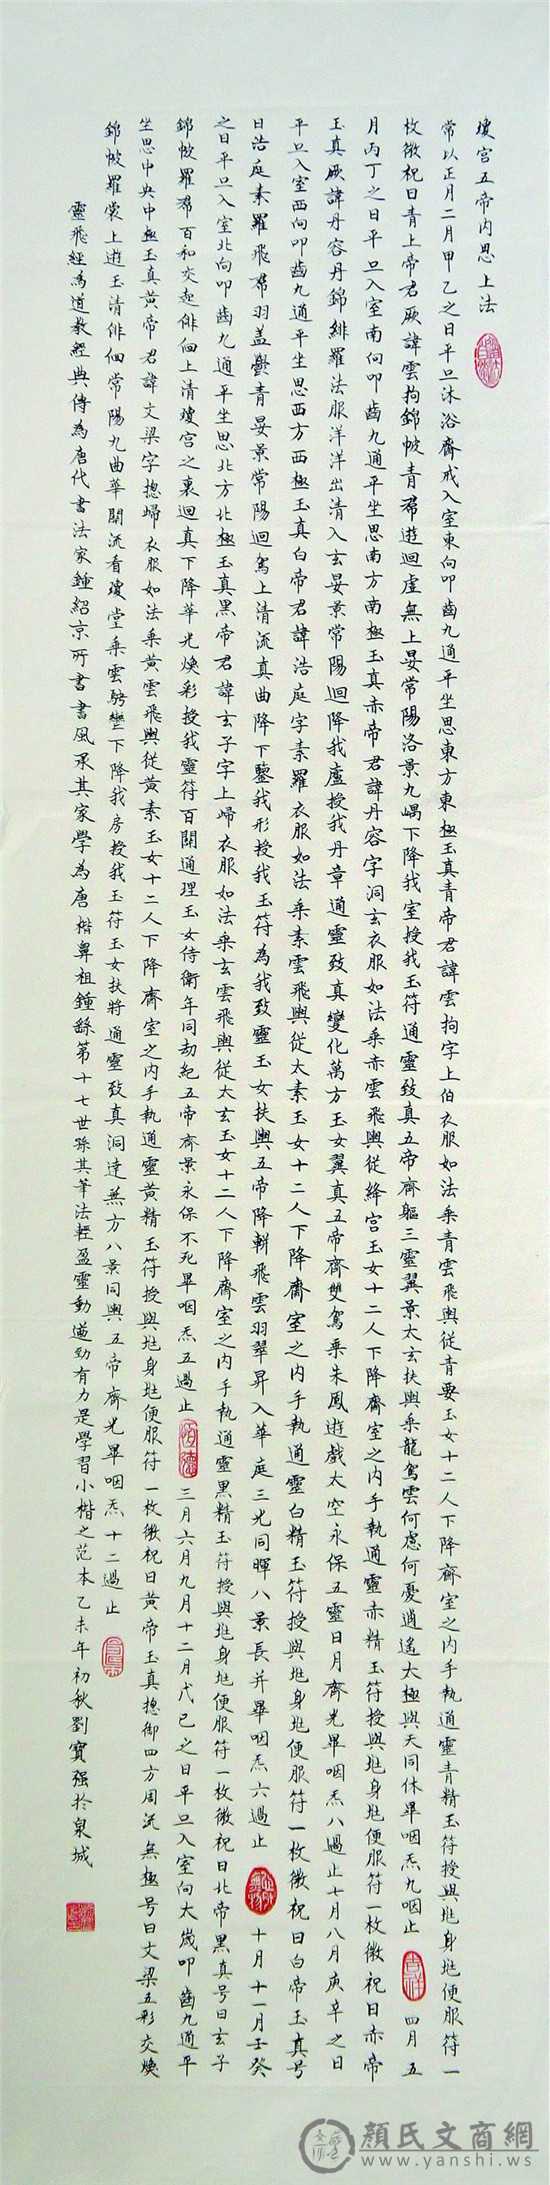 瓊宮五帝内思上法
常以正月二月甲乙之日平旦沐浴齋戒入室東向叩齒九通平坐思東方東極玉真青帝君諱雲拘字上伯衣服如法乘青雲飛輿從青要玉女十二人下降齋室之内手執通靈青精玉符授與地身地便服符一
枚微祝曰青上帝君厥諱雲拘錦帔青帬遊迴虚無上晏常陽洛景九嵎下降我室授我玉符通靈致真五帝齊軀三靈翼景太玄扶輿乘龍駕雲何慮何憂逍遙太極與天同休畢咽炁九咽止 吉祥 四月五
月丙丁之日平旦入室南向叩齒九通平坐思南方南極玉真赤帝君諱丹容字洞玄衣服如法乘赤雲飛輿從絳宮玉女十二人下降齋室之内手執通靈赤精玉符授與地身地便服符一枚微祝曰赤帝
玉真厥諱丹容丹錦緋羅法服洋洋出清入玄晏景常陽迴降我廬授我丹章通靈致真變化萬方玉女翼真五帝齊雙駕乘朱鳳遊戲太空永保五靈日月齊光畢咽炁八過止七月八月庚辛之日
平旦入室西向叩齒九通平坐思西方西極玉真白帝君諱浩庭字素羅衣服如法乘素雲飛輿從太素玉女十二人下降齋室之内手執通靈白精玉符授與地身地便服符一枚微祝曰白帝玉真号
曰浩庭素羅飛帬羽盖鬱青晏景常陽迴駕上清流真曲降下鑒我形授我玉符為我致靈玉女扶輿五帝降軿飛雲羽翠昇入華庭三光同暉八景長并畢咽炁六過止 十月十一月壬癸
之日平旦入室北向叩齒九通平坐思北方北極玉真黑帝君諱玄子字上歸衣服如法乘玄雲飛輿從太玄玉女十二人下降齋室之内手執通靈黑精玉符授與地身地便服符一枚微祝曰北帝黑真号曰玄子
錦帔羅帬百和交起俳佪上清瓊宮之裏迴真下降華光煥彩授我靈符百關通理玉女侍衛年同劫紀五帝齊景永保不死畢咽炁五過止 三月六月九月十二月戊己之日平旦入室向太歲叩齒九通平
坐思中央中極玉真黄帝君諱文梁字揔歸衣服如法乘黄雲飛輿從黄素玉女十二人下降齋室之内手執通靈黄精玉符授與地身地便服符一枚微祝曰黄帝玉真揔御四方周流無極号曰文梁五彩交煥
錦帔羅裳上遊玉清俳佪常陽九曲華關流看瓊堂乘雲騁轡下降我房授我玉符玉女扶將通靈致真洞達無方八景同輿五帝齊光畢咽炁十二過止
靈飛經為道教經典傳為唐代書法家鍾紹京所書書風承其家學為唐楷鼻祖鍾繇第十七世孫其筆法輕盈靈動遒勁有力是學習小楷之范本乙未年初秋劉寶强於泉城
顔氏文商網
www.yanshi.ws